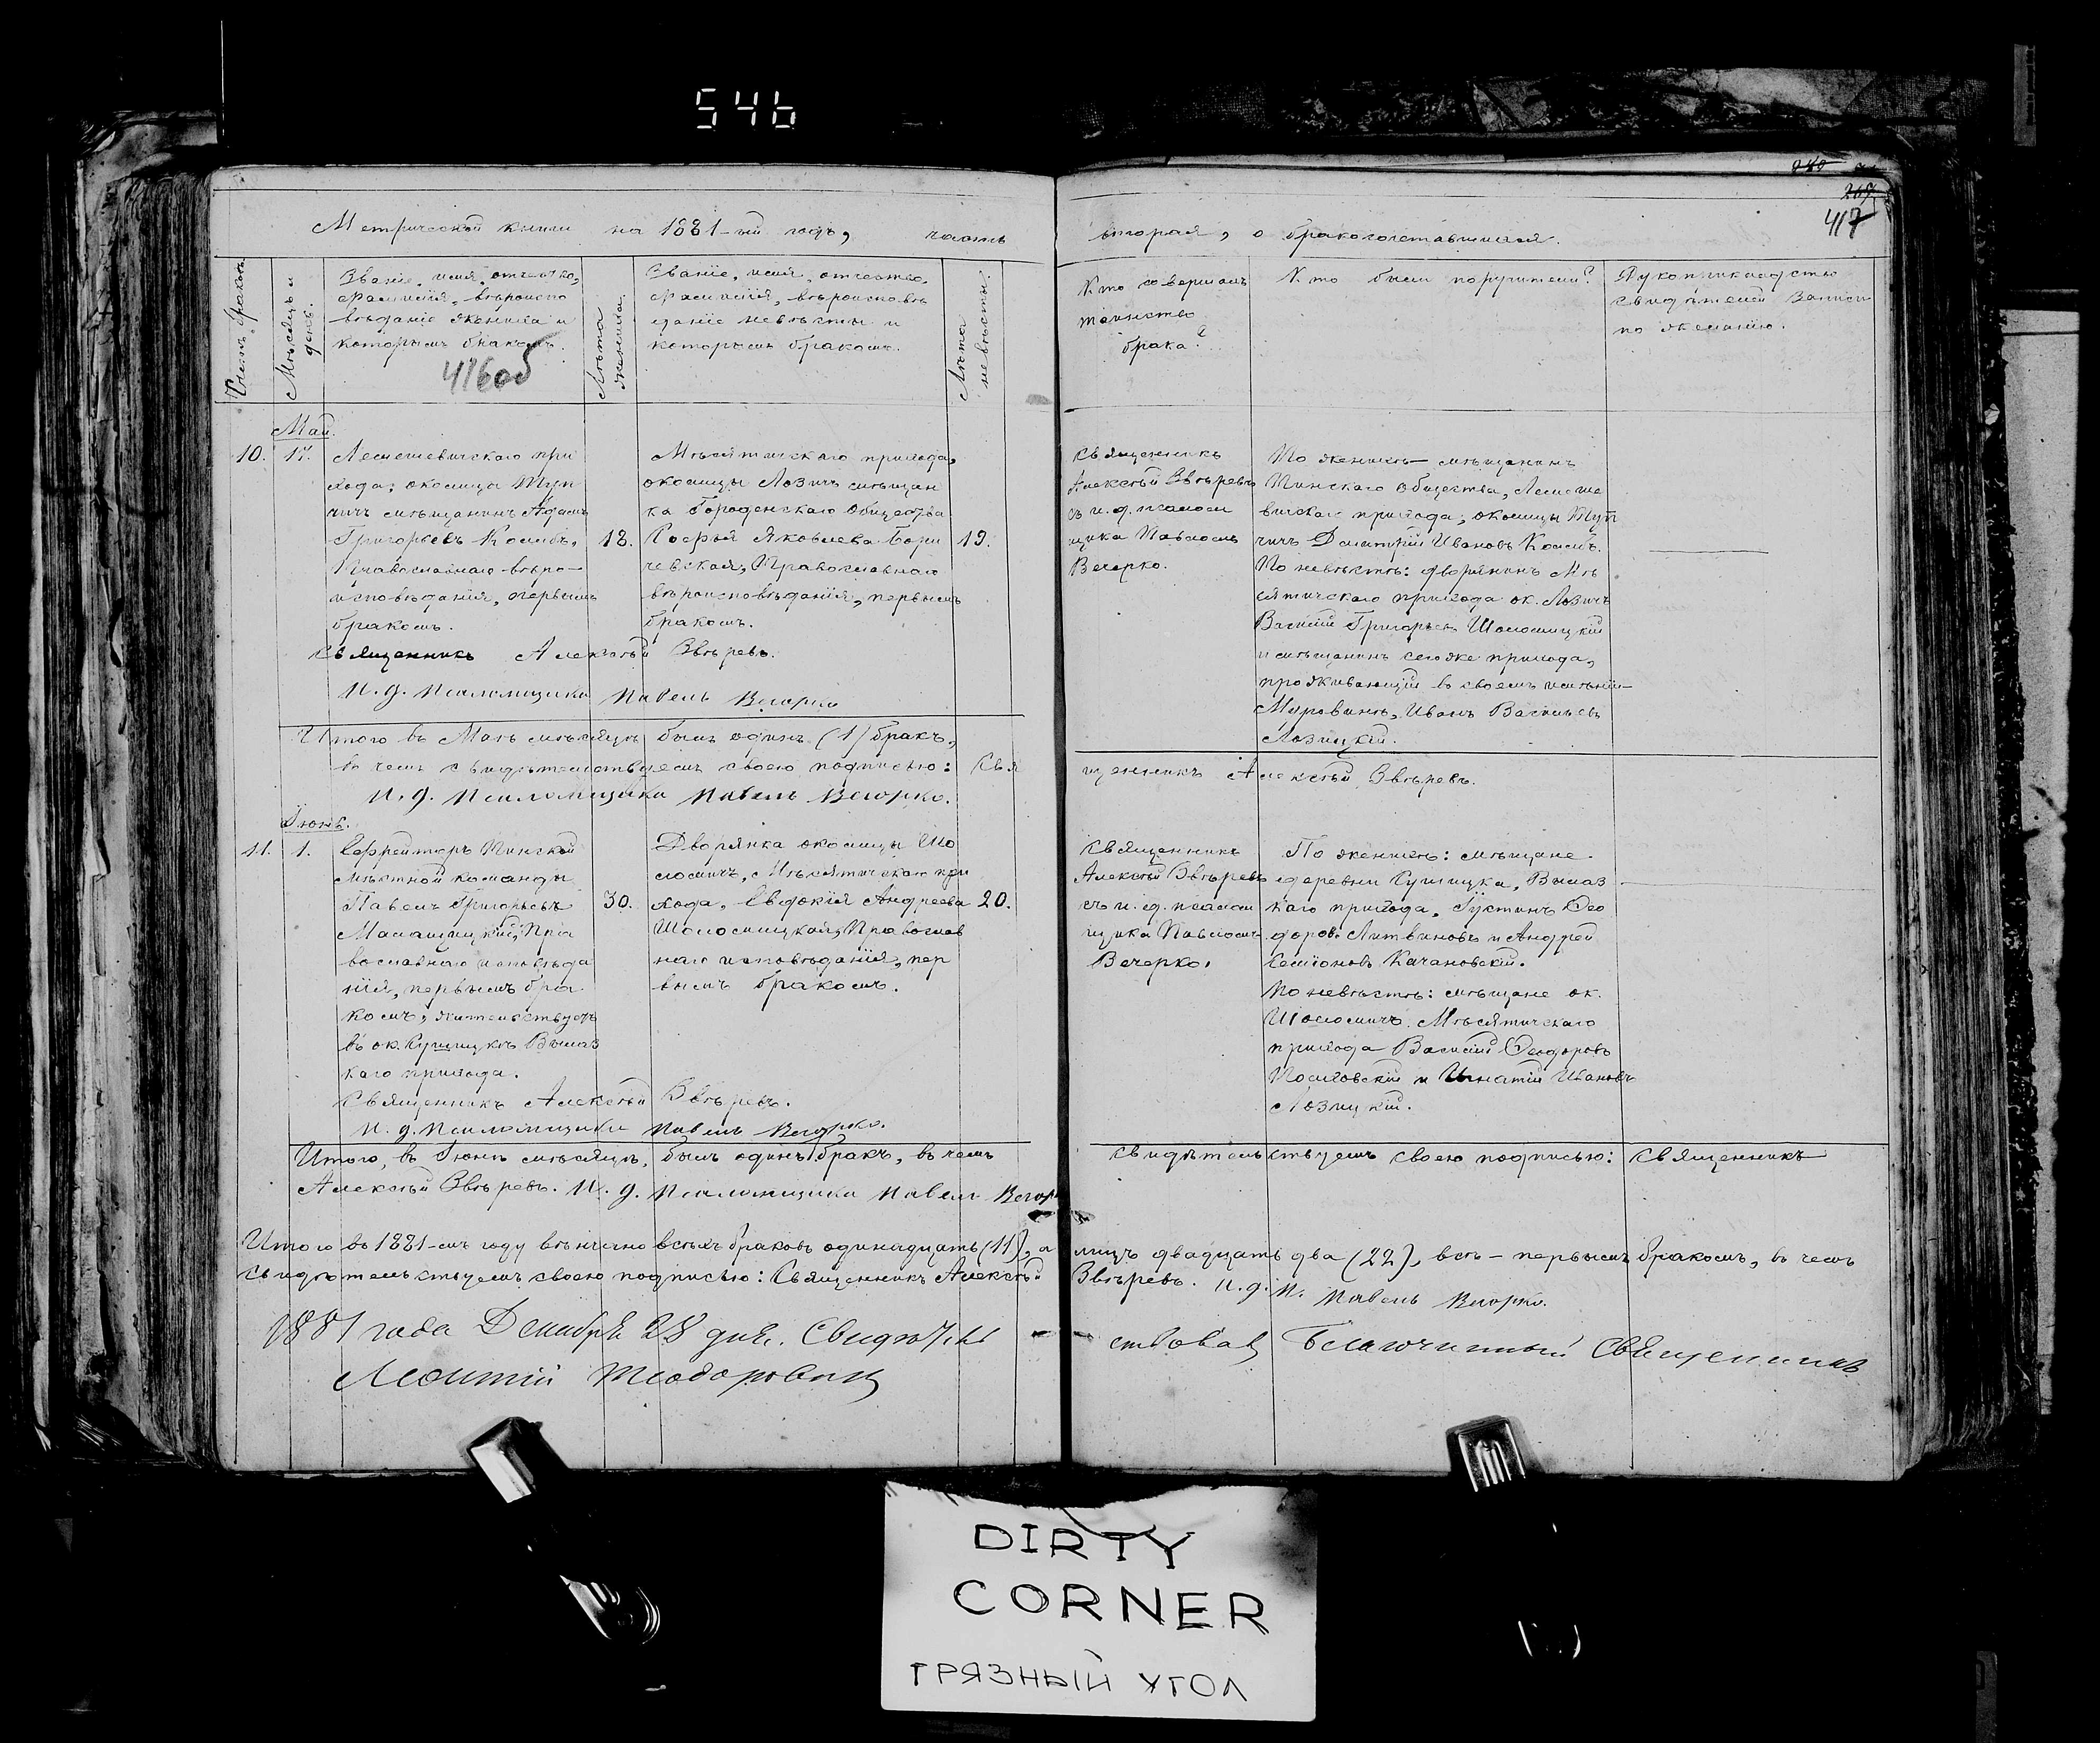 546
280
267
417
Метрической книги на 1881-ый годъ, часть
вторая, о бракосочетавшихся.
Счетъ браковъ.
Мѣсяцъ и день.
Званіе, имя, отчество,
фамилія, вѣроиспо
вѣданіе жениха и
которымъ бракомъ.
416об
Лѣта жениха.
Званіе, имя, отчество,
фамилія, вѣроисповѣ
даніе невѣсты и
которымъ бракомъ.
Лѣта невѣсты.
Кто совершалъ
таинство
брака?
Кто были поручители?
Рукоприкладство
свидѣтелей записи
по желанію.
Май.
10. 17.
Лемешевичскаго при
хода, околицы Туп
чичъ мѣщанинъ Адамъ
Григорьевъ Колбъ,
Православнаго вѣро-
исповѣданія, первымъ
бракомъ.
18.
Мѣсятичскаго прихода,
околицы Лозичъ мѣщан
ка Городенскаго общества
Софья Яковлева Бори
чевская, Православнаго
вѣроисповѣданія, первымъ
бракомъ.
19.
Священникъ
Алексѣй Звѣревъ
съ и. д. псалом
щика Павломъ
Вечерко.
По женихѣ — мѣщанинъ
Пинскаго общества, Лемеше
вичскаго прихода, околицы Туп
чичъ Димитрій Ивановъ Колбъ.
По невѣстѣ: дворянинъ Мѣ
сятичскаго прихода ок. Лозичъ
Василій Григорьевъ Шоломицкій
и мѣщанинъ сегоже прихода,
проживающій въ своемъ имѣніи—
Муровинѣ, Иванъ Васильевъ
Лозицкій.
Священникъ Алексѣй Звѣревъ.
И. д. Псаломщика Павелъ Вечорко
Итого въ Маѣ мѣсяцѣ былъ одинъ (1) бракъ,
въ чемъ свидѣтельствуемъ своею подписью: Свя
щенникъ Алексѣй Звѣревъ.
И. д. Псаломщика Павелъ Вечорко.
Іюнь.
11. 1.
Ефрейторъ Пинской
мѣстной команды
Павелъ Григорьевъ
Малащицкій, Пра
вославнаго исповѣда
нія, первымъ бра
комъ, жительствуетъ
въ ок. Купицкѣ Вылаз
каго прихода.
30.
Дворянка околицы Шо
ломичъ, Мѣсятичскаго при
хода, Евдокія Андреева
Шоломицкая, Православ
наго исповѣданія, пер
вымъ бракомъ.
20.
Священникъ
Алексѣй Звѣревъ
съ и. д. псалом
щика Павломъ
Вечерко.
По женихѣ: мѣщане
деревни Купицка, Вылаз
каго прихода, Іустинъ Ѳео
доровъ Литвиновъ и Андрей
Семіоновъ Качановскій.
По невѣстѣ: мѣщане ок.
Шоломичъ Мѣсятичскаго
прихода Василій Ѳеодоровъ
Полховскій и Игнатій Ивановъ
Лозицкій.
Священникъ Алексѣй Звѣревъ.
И. д. Псаломщика Павелъ Вечорко.
Итого, въ Іюнѣ мѣсяцѣ, былъ одинъ бракъ, въ чемъ
свидѣтельствуемъ своею подписью: Священникъ
Алексѣй Звѣревъ. И. д. Псаломщика Павелъ Вечор
Итого въ 1881-мъ году вѣнчано всѣхъ браковъ одинадцать (11), а
лицъ двадцать два (22), всѣ — первымъ бракомъ, въ чемъ
свидѣтельствуемъ своею подписью: Священникъ Алексѣй
Звѣревъ. И. д. П. Павелъ Вечорко.
1881 года Декабря 28 дня. Свидѣтель
ствовалъ Благочинный Священникъ
Леонтій Теодоровичъ
DIRTY
CORNER
ГРЯЗНЫЙ УГОЛ